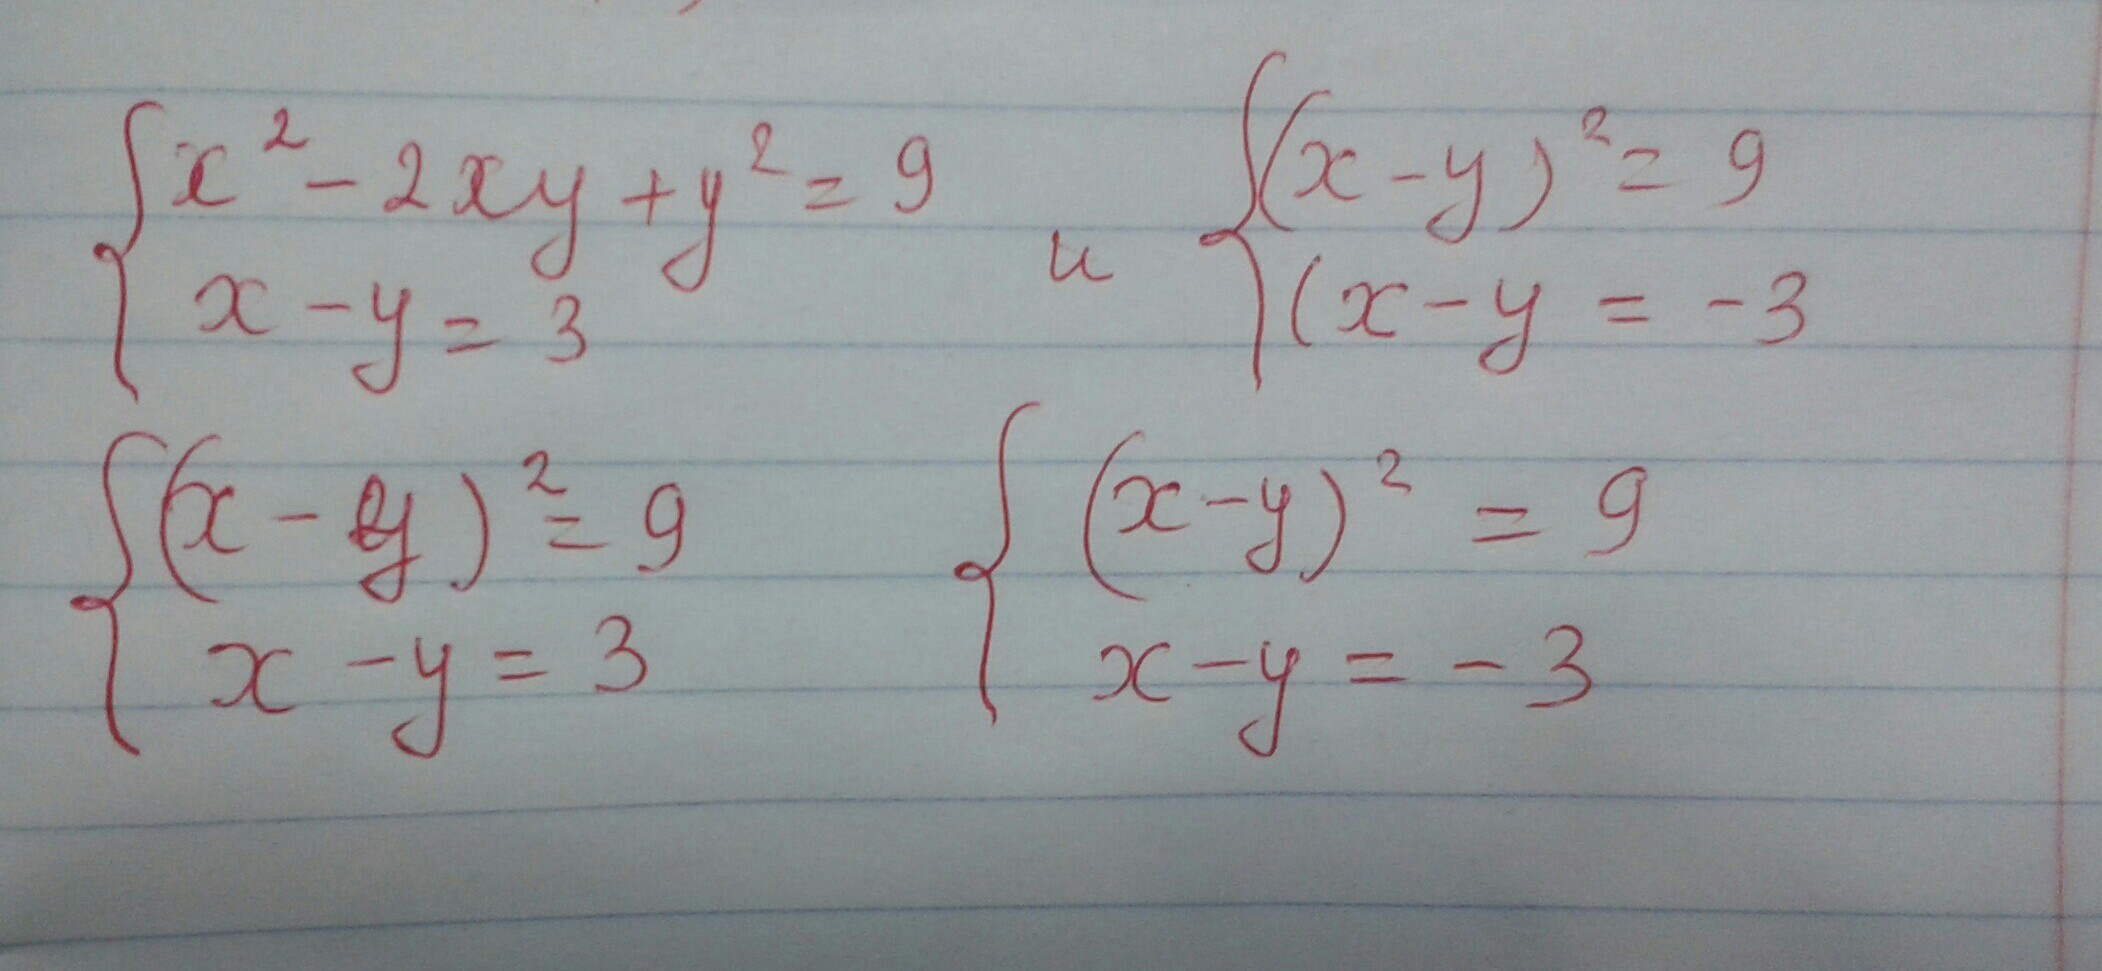 x² - 2xy + y² = 9
x - y = 3
и
(x - y)² = 9
(x - y = -3
(x - y)² = 9
x - y = 3
(x - y)² = 9
x - y = -3